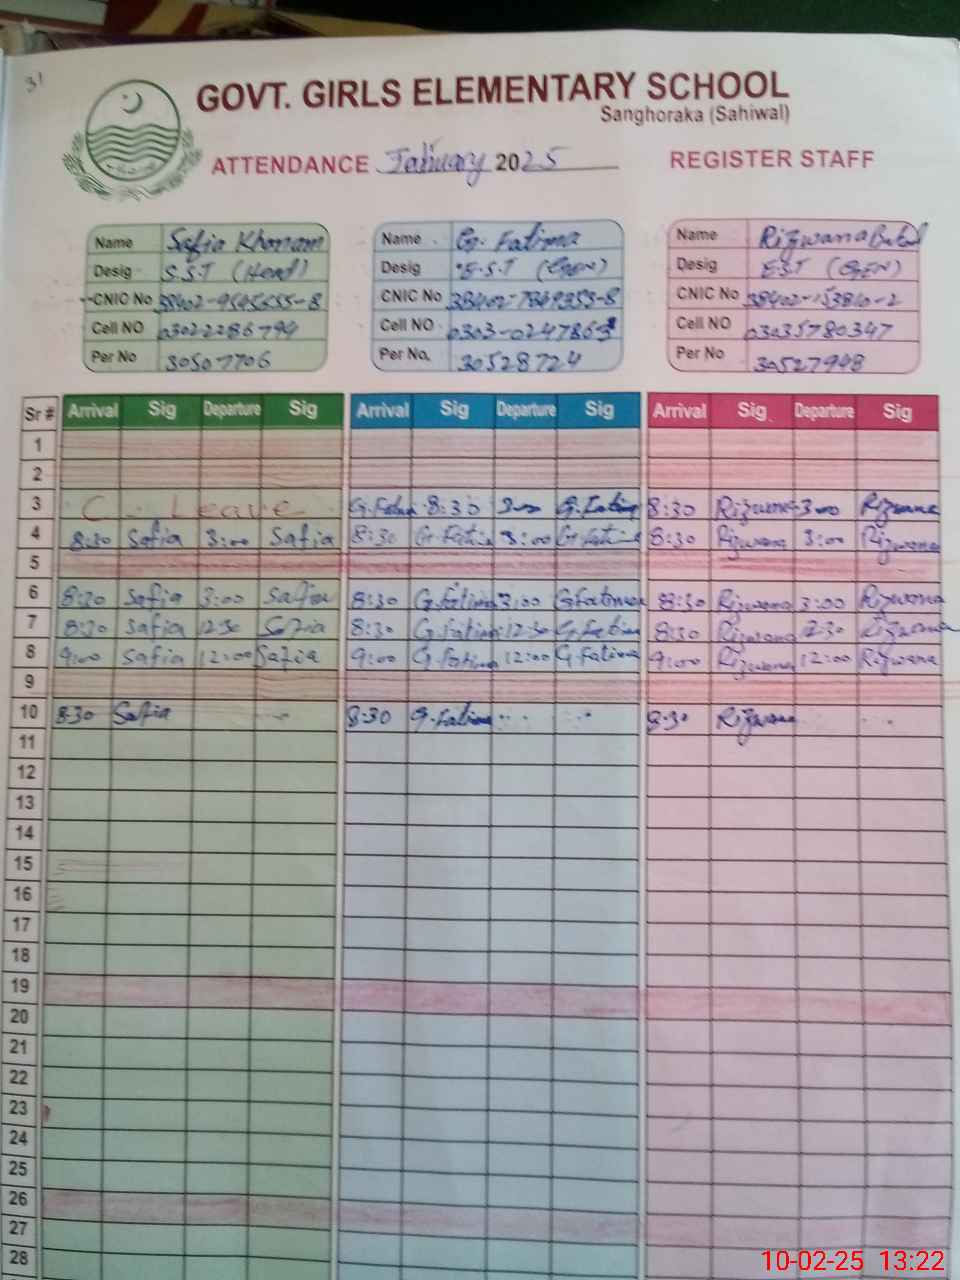 31
GOVT. GIRLS ELEMENTARY SCHOOL
Sanghoraka (Sahiwal)
ATTENDANCE January 2025 REGISTER STAFF
Name Safia Khanam Name G. Fatima Name Rizwana Batool
Desig S.S.T (Head) Desig E.S.T (Gen) Desig E.S.T (GEN)
CNIC No CNIC No CNIC No
Cell NO 03022286794 Cell NO Cell NO 03035780347
Per No 30507706 Per No. 30528724 Per No 30527948
Sr # Arrival Sig Departure Sig Arrival Sig Departure Sig Arrival Sig Departure Sig
1
2
3 C. Leave G.Fatima 8:30 3:00 G.Fatima 8:30 Rizwana 3:00 Rizwana
4 8:30 Safia 3:00 Safia 8:30 G.Fatima 3:00 G.Fatima 8:30 Rizwana 3:00 Rizwana
5
6 8:30 Safia 3:00 Safia 8:30 G.Fatima 3:00 G.Fatima 8:30 Rizwana 3:00 Rizwana
7 8:30 Safia 12:30 Safia 8:30 G.Fatima 12:30 G.Fatima 8:30 Rizwana 12:30 Rizwana
8 9:00 Safia 12:00 Safia 9:00 G.Fatima 12:00 G.Fatima 9:00 Rizwana 12:00 Rizwana
9
10 8:30 Safia 8:30 G.Fatima 8:30 Rizwana
11
12
13
14
15
16
17
18
19
20
21
22
23
24
25
26
27
28
10-02-25 13:22